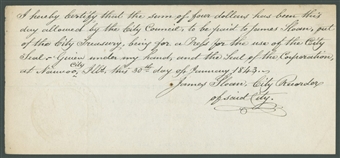 I hereby certify that the sum of four dollars has been this
day allowed by the City Council, to be paid to James Sloan, out
of the City Treasury, being for a Press for the use of the City
Seal - Given under my hand, and the Seal of the Corporation,
at Nauvoo City, Ills. this 30th day of January 1843.
James Sloan, City Recorder
of said City.